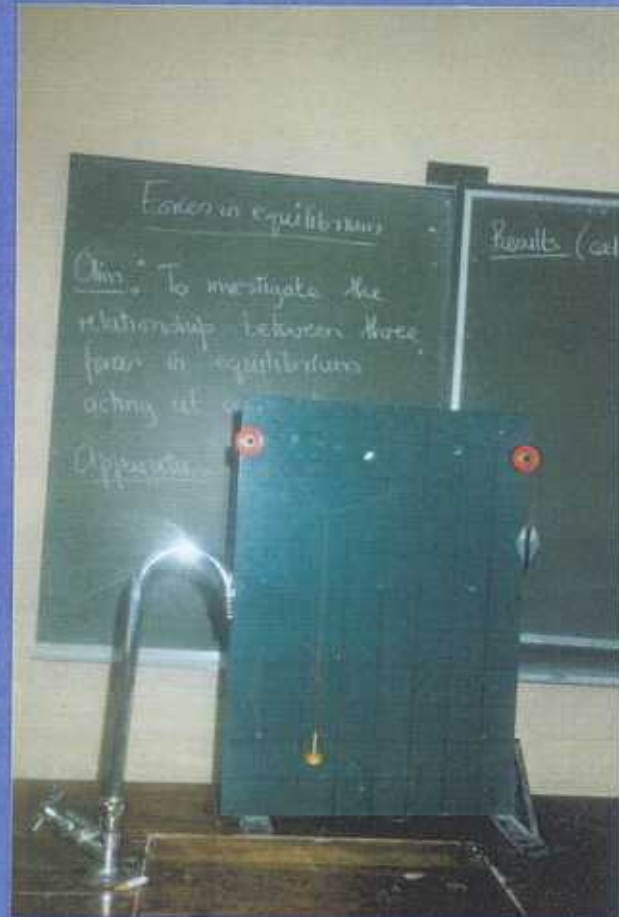 Forces in equilibrium
Aim: To investigate the
relationship between three
forces in equilibrium
acting at
Apparatus
Results